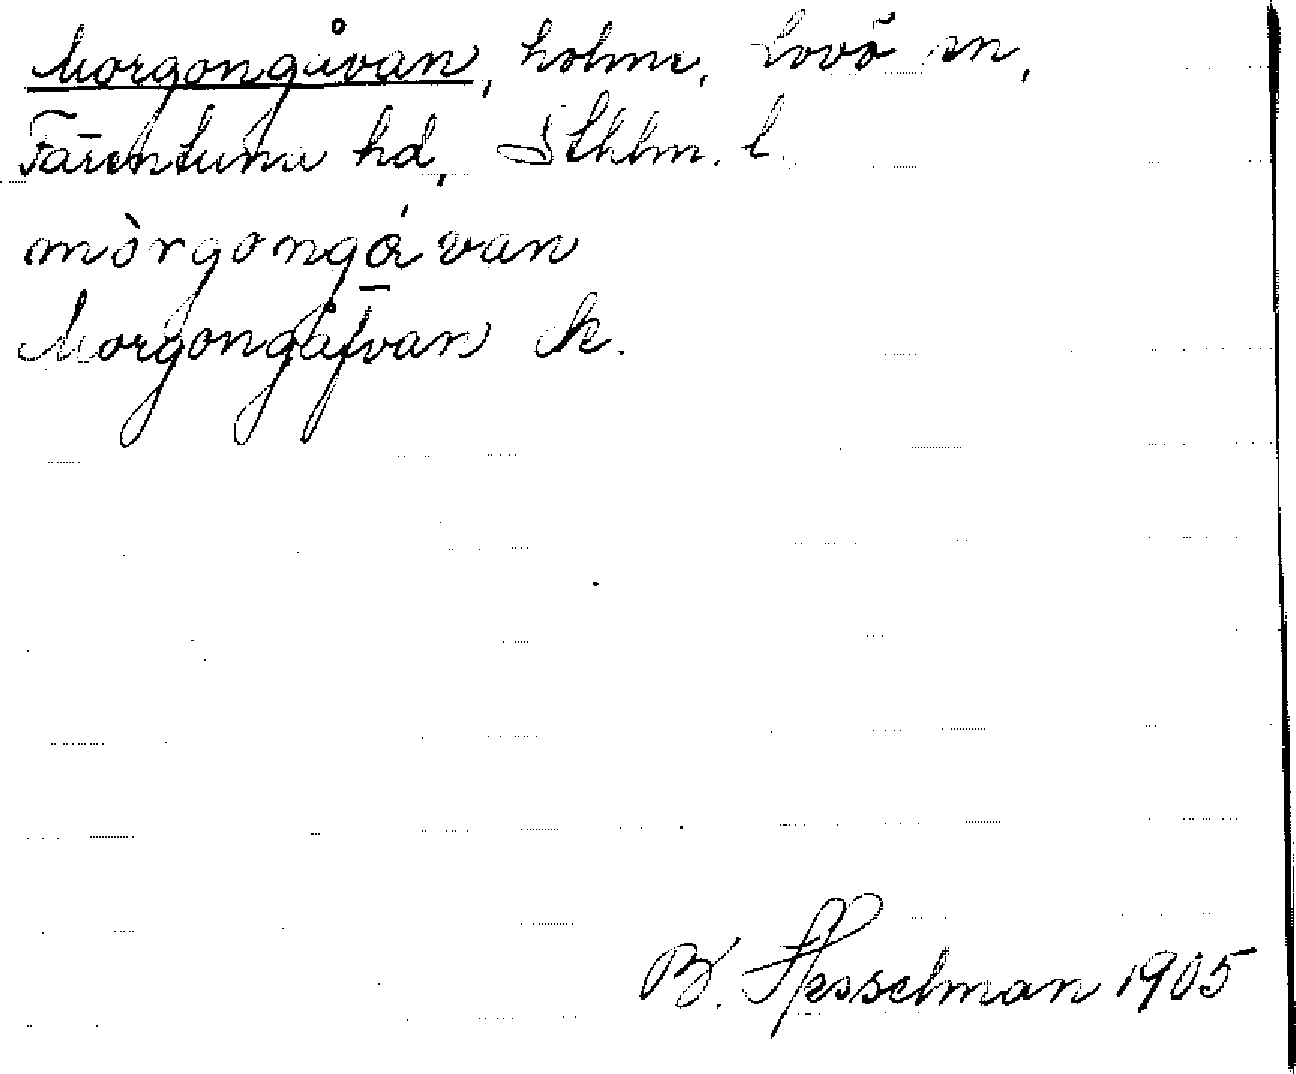 Morgongåvan, holme, Lovö sn,
Färentuna hd, Sthlm. l.
mòrgongá̱van
Morgongåfvan k.
B. Hesselman 1905